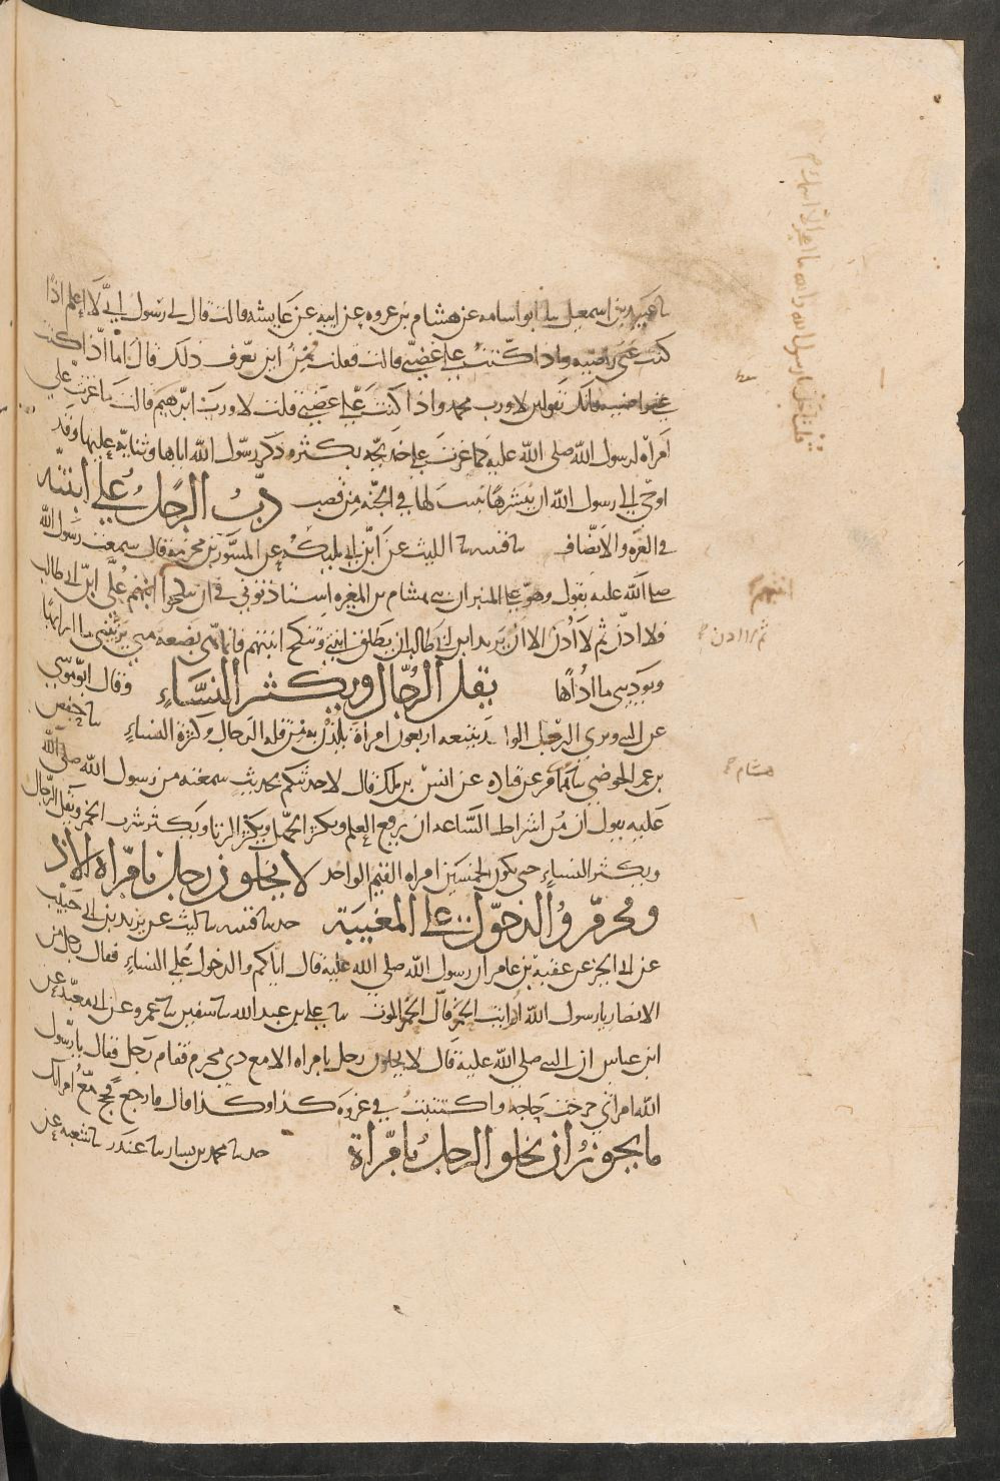 عبيد بن اسمعيل سا ابو اسامه عن هشام بن عروه عن ابيه عن عايشه قالت قال لي رسول اني لاعلم اذا
كنت عني راضيه واذا كنت علي غضبي قالت فقلت من اين تعرف ذلك قال اما اذا كنت
عني راضيه فانك تقولين لا ورب محمد واذا كنت علي غضبي قلت لا ورب ابرهيم قالت ما غرت علي
امراه لرسول الله صلي الله عليه كما غرت علي خديجه بكثره ذكر رسول الله اياها وثنايه عليها وقد
اوحي الي رسول الله ان يبشرها ببيت لها في الجنه من قصب ذب الرجل علي ابنته
في الغيره والانصاف سا قتيبه سا الليث عن ابن ابي مليكه عن المسور بن مخرمه قال سمعت رسول الله
صلي الله عليه يقول وهو علي المنبر ان بني هشام بن المغيره استاذنوني في ان ينكحوا ابنتهم علي ابن ابي طالب
فلا اذن ثم لا اذن الا ان يريد ابن ابي طالب ان يطلق ابنتي وينكح ابنتهم فانما هي بضعه مني يريبني ما ارابها
ويوذيني ما اذاها يقل الرجال ويكثر النساء وقال ابو موسي
عن النبي وتري الرجل الواحد يتبعه اربعون امراه يلذن به من قله الرجال وكثره النساء سا حفص
بن عمر الحوضي سا همام عن قتاده عن انس بن ملك قال لاحدثنكم بحديث سمعته من رسول الله صلي الله
عليه يقول ان من اشراط الساعه ان يرفع العلم ويكثر الجهل ويكثر الزنا ويكثر شرب الخمر ويقل الرجال
ويكثر النساء حتي يكون لخمسين امراه القيم الواحد لا يخلون رجل بامراه الا ذو
محرم والدخول علي المغيبة حدسا قتيبه سا ليث عن يزيد بن ابي حبيب
عن ابي الخير عن عقبه بن عامر ان رسول الله صلي الله عليه قال اياكم والدخول علي النساء فقال رجل من
الانصار يا رسول الله افرايت الحمو قال الحمو الموت سا علي بن عبد الله سا سفين سا عمرو عن ابي معبد عن
ابن عباس ان النبي صلي الله عليه قال لا يخلون رجل بامراه الا مع ذي محرم فقام رجل فقال يا رسول
الله امراتي خرجت حاجه واكتتبت في غزوه كذا وكذا قال فارجع فحج مع امراتك
ما يجوز ان يخلو الرجل بامراة حدسا محمد بن بشار سا غندر سا شعبه عن
ابنتهم
ثم لا اذن
هشام